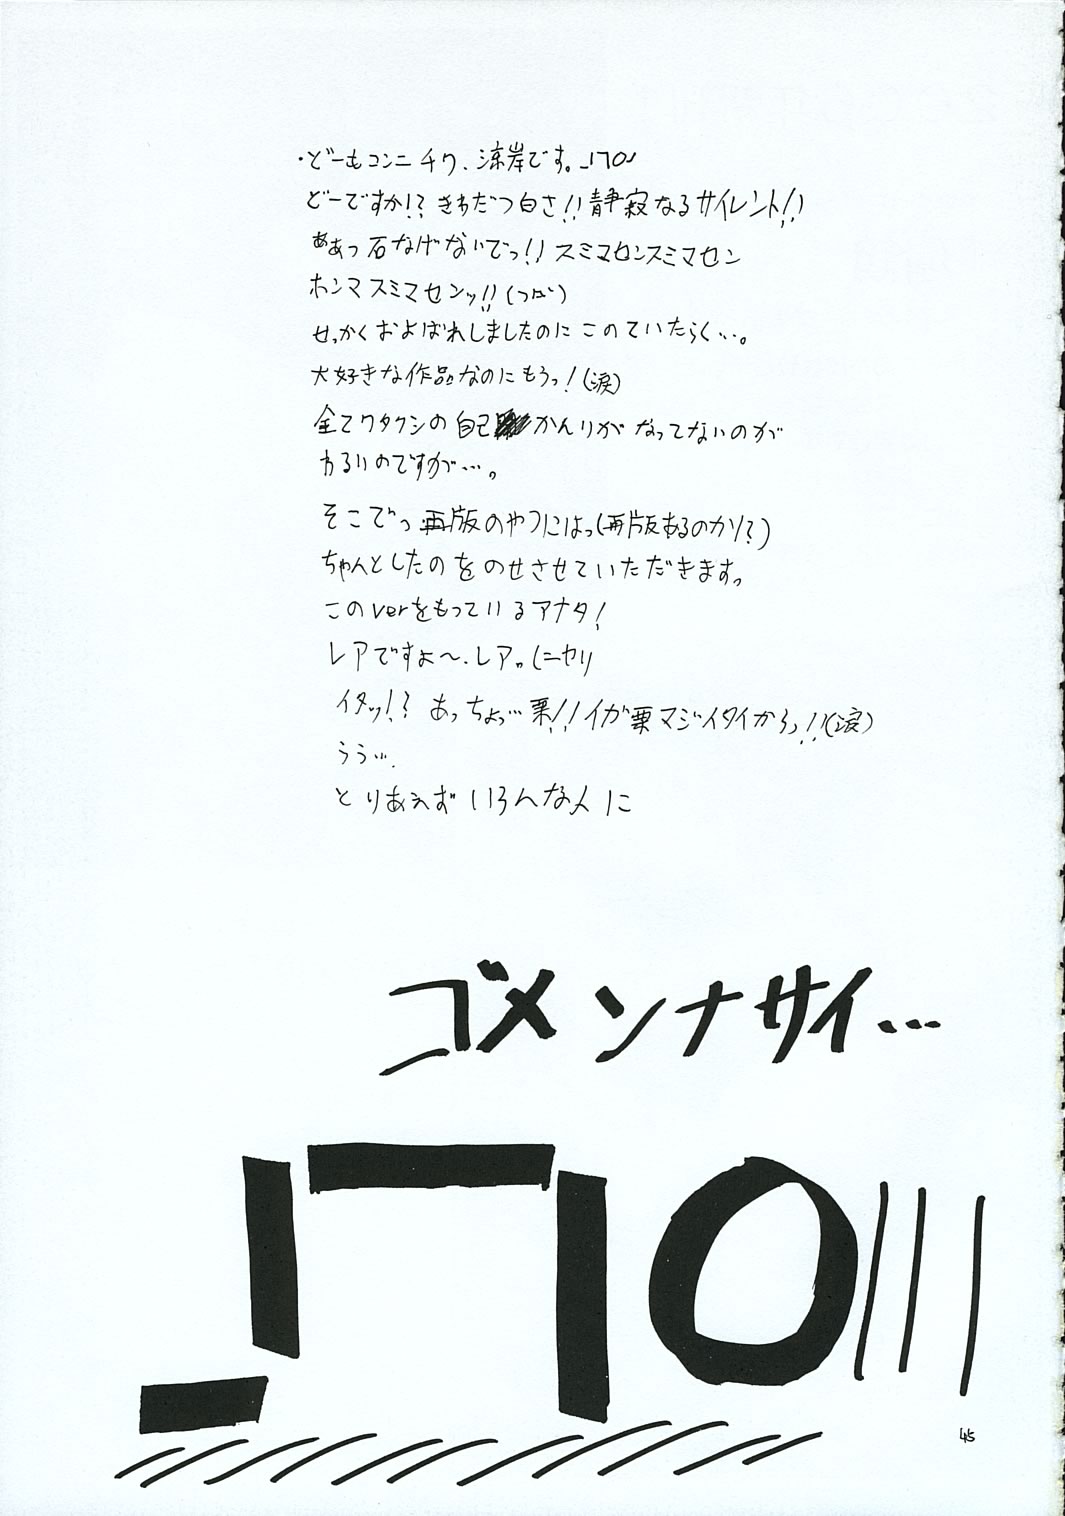 ・どーもコンニチワ、涼岸です。_| ̄|○
どーですか!?きわだつ白さ!!静寂なるサイレント!!
ああっ石なげないでっ!!スミマセンスミマセン
ホンマスミマセンッ!!
せっかくおよばれしましたのにこのていたらく…。
大好きな作品なのにもうっ!(涙)
全てワタクシの自己かんりがなってないのが
わるいのですが…。
そこでっ再版のやつにはっ(再版あるのかり?)
ちゃんとしたのをのせさせていただきます。
このverをもっているアナタ!
レアですよ〜.レア。(ニヤリ
イタッ!?あっちょっ…栗!!イガ栗マジイタイからっ!!(涙)
うぅ….
とりあえずいろんな人に
ゴメンナサイ…
_| ̄|○|||
45